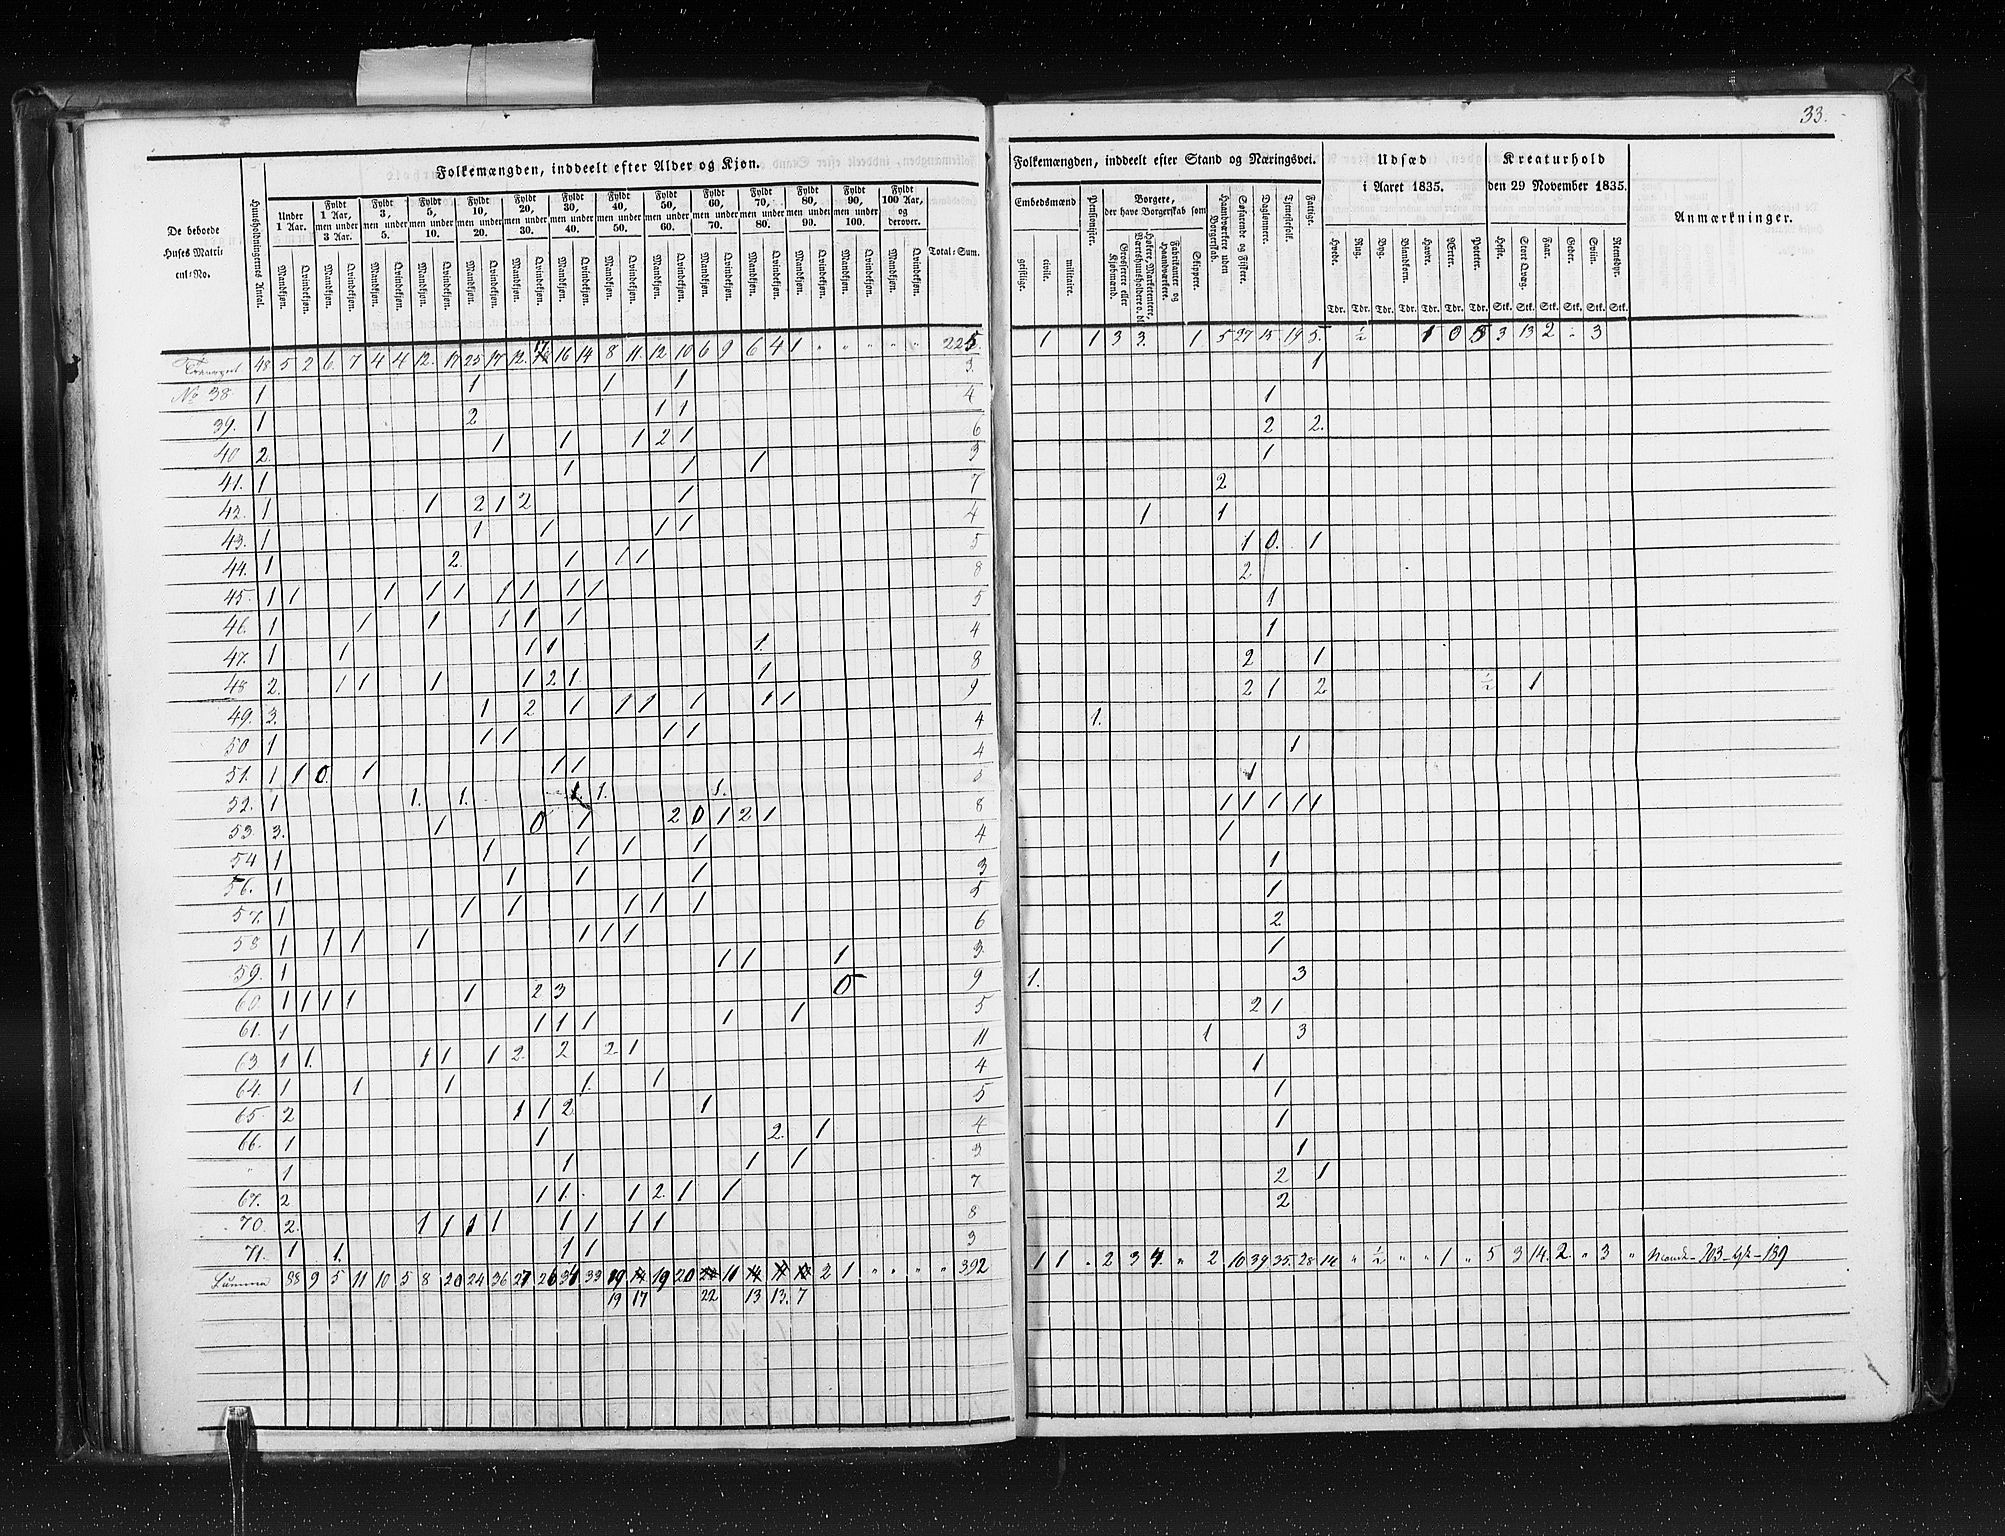 33.
Folkemængden, inddeelt efter Alder og Kjøn.
De beboede Huses Matricul-No.
Huusholdningernes Antal.
Under 1 Aar.
Fyldt 1 Aar, men under 3 Aar.
Fyldt 3, men under 5.
Fyldt 5, men under 10.
Fyldt 10, men under 20.
Fyldt 20, men under 30.
Fyldt 30, men under 40.
Fyldt 40, men under 50.
Fyldt 50, men under 60.
Fyldt 60, men under 70.
Fyldt 70, men under 80.
Fyldt 80, men under 90.
Fyldt 90, men under 100.
Fyldt 100 Aar, og derover.
Mandkjøn. Qvindekjøn.
Total-Sum.
Folkemængden, inddeelt efter Stand og Næringsvei.
Embedsmænd
geistlige. civile. militaire.
Pensionister.
Borgere, der have Borgerskab som
Grosserer eller Kjøbmænd.
Fabrikanter og Haandværkere.
Skippere.
Haandværkere uden Borgerskab.
Søfarende og Fiskere.
Daglønnere.
Tjenestefolk.
Fattige.
Udsæd i Aaret 1835.
Hvede. Rug. Byg. Blandkorn. Havre. Erter. Poteter.
Tdr. Tdr. Tdr. Tdr. Tdr. Tdr. Tdr.
Kreaturhold den 29 November 1835.
Heste. Stort Qvæg. Faar. Geder. Sviin. Reensdyr.
Stk. Stk. Stk. Stk. Stk. Stk.
Anmærkninger.
Transport 48 5 2 6 7 4 4 12 17 25 17 12 17 16 14 8 11 12 10 6 9 6 4 1 225 1 1 3 3 1 5 27 15 19 5 ½ 1 0 8 3 13 2 3
No 38 1 1 1 1 3 1
39. 1 2 1 1 4 1
40 2. 1 1 1 2 1 6 2 2.
41. 1 1 1 1 3 1
42. 1 1 2 1 2 1 7 2
43. 1 1 1 1 1 4 1 1
44. 1 2. 1 1 1 5 1 0. 1
45. 1 1 1 1 1 1 1 1 1 8 2
46. 1 1 1 1 1 1 5 1
47. 1 1 1 1 1 4 1
48 2. 1 1 1 1 2 1 1 8 2 1
49. 3. 1 2 1 1 1 1 1 1 9 2 1 2 ½ 1
50 1 1 1 1 1 4 1.
51. 1 1 0. 1 1 1 4 1
52. 1 1. 1. 1. 1. 1. 5 1
53. 3. 1 0 1 2 0 1 2 1 8 1 1 1 1 1
54 1 1 1 1 1 4 1
56. 1 1 1 1 3 1
57. 1 1 1 1 1 1 5 1
58 1 1 1 1 1 1 1 6 2
59. 1 1 1 1 3. 1
60 1 1 1 1 1 2 3 0 9 1. 3
61. 1 1 1 1 1 1 5 2 1
63. 1 1. 1 1 1 2 2 2 1 11 1 3
64. 1 1 1 1. 1 4 1
65 2 1 1 2 1 5 1
66. 1 1 2. 1 4 1
" 1 1 1 1 3 1
67. 2 1 1. 1 2. 1 1 7 2 1
70. 2. 1 1 1 1 1 1 1 1 8 2
71. 1 1. 1 1 3
Summa 88 9 5 11 10 5 8 20 24 36 27 26 34 33 19 19 20 11 2 1 392 1 1 2 3 4 2 10 39 35 28 14 ½ 1 5 3 14 2 3 Mandk - 203 - Qvk - 189
19 17 22 13 13. 7